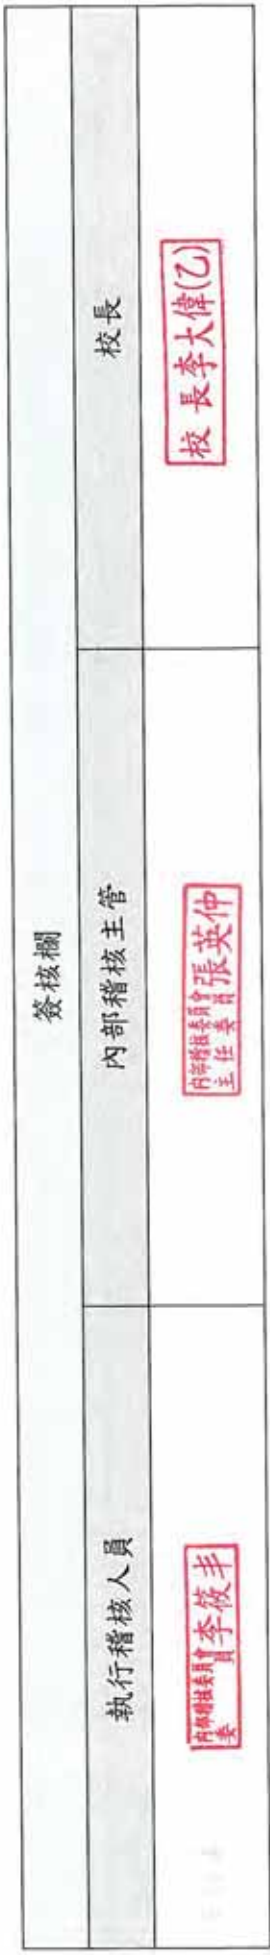 簽核欄
執行稽核人員
內部稽核主管
校長
內部稽核委員會
委員李筱丰
內部稽核委員會
主任委員張英仲
校長李大偉(乙)